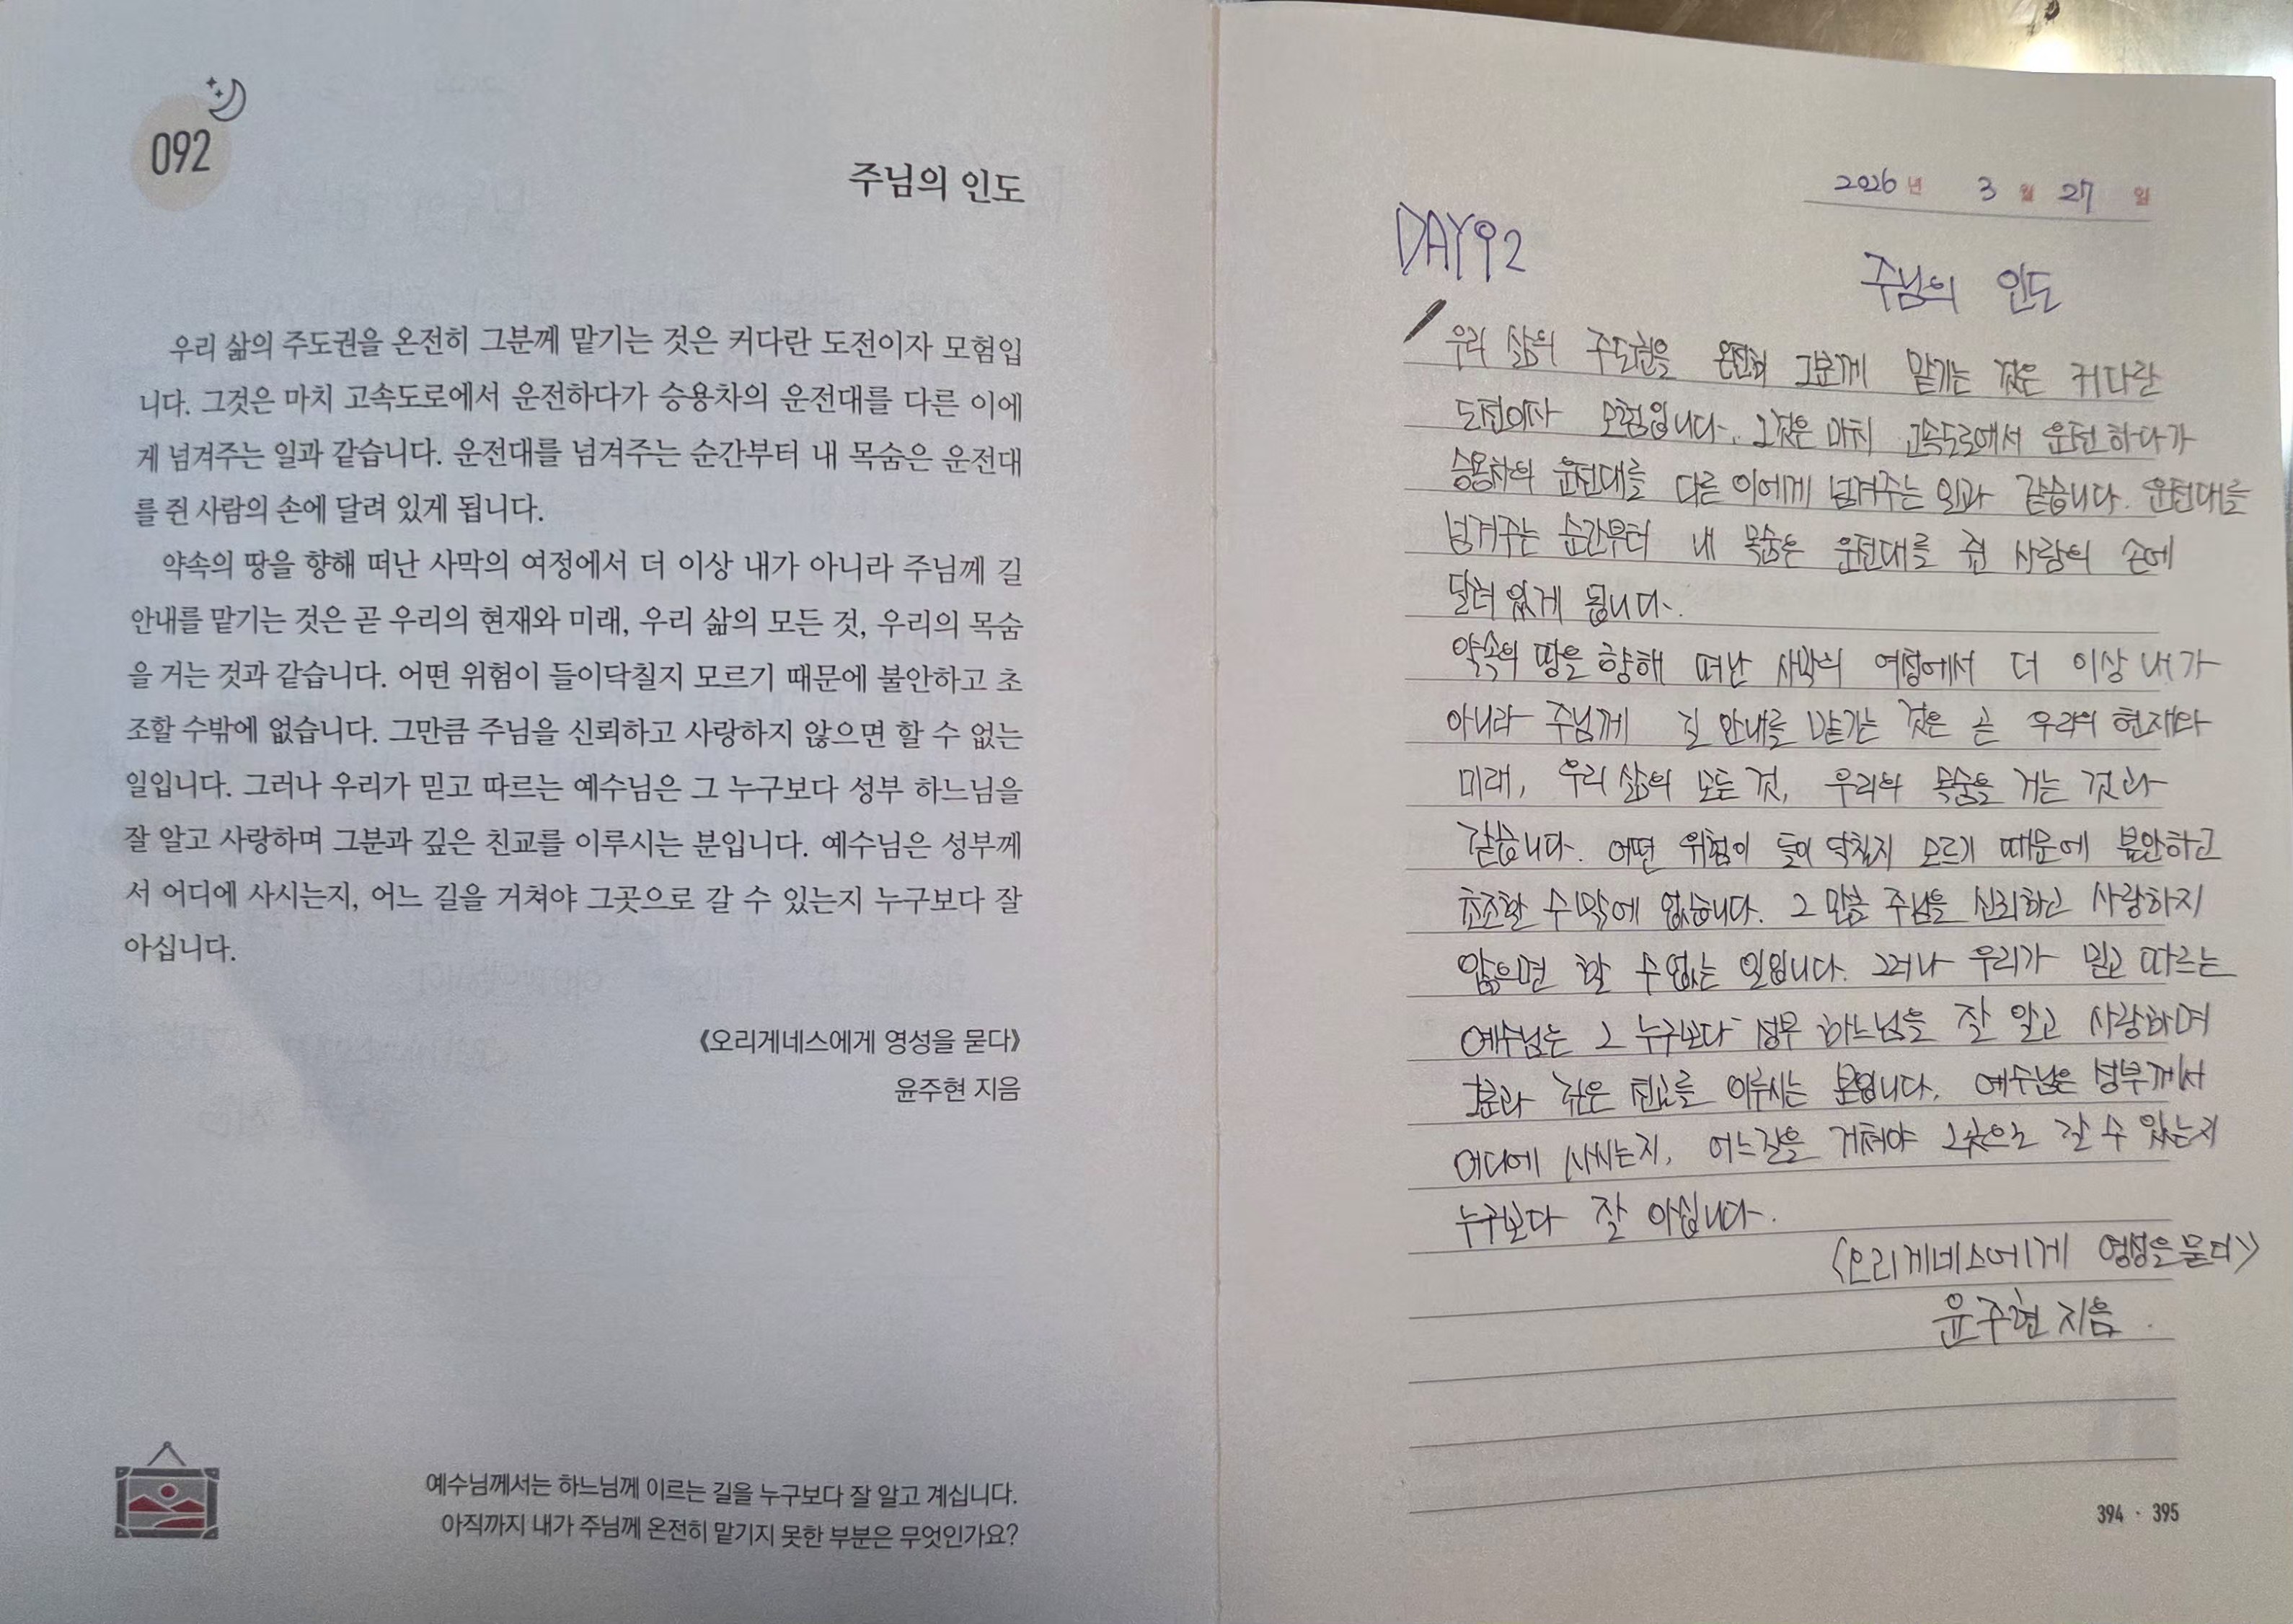 092
주님의 인도
우리 삶의 주도권을 온전히 그분께 맡기는 것은 커다란 도전이자 모험입
니다. 그것은 마치 고속도로에서 운전하다가 승용차의 운전대를 다른 이에
게 넘겨주는 일과 같습니다. 운전대를 넘겨주는 순간부터 내 목숨은 운전대
를 쥔 사람의 손에 달려 있게 됩니다.
약속의 땅을 향해 떠난 사막의 여정에서 더 이상 내가 아니라 주님께 길
안내를 맡기는 것은 곧 우리의 현재와 미래, 우리 삶의 모든 것, 우리의 목숨
을 거는 것과 같습니다. 어떤 위험이 들이닥칠지 모르기 때문에 불안하고 초
조할 수밖에 없습니다. 그만큼 주님을 신뢰하고 사랑하지 않으면 할 수 없는
일입니다. 그러나 우리가 믿고 따르는 예수님은 그 누구보다 성부 하느님을
잘 알고 사랑하며 그분과 깊은 친교를 이루시는 분입니다. 예수님은 성부께
서 어디에 사시는지, 어느 길을 거쳐야 그곳으로 갈 수 있는지 누구보다 잘
아십니다.
《오리게네스에게 영성을 묻다》
윤주현 지음
예수님께서는 하느님께 이르는 길을 누구보다 잘 알고 계십니다.
아직까지 내가 주님께 온전히 맡기지 못한 부분은 무엇인가요?
2026년 3월 27일
DAY92
주님의 인도
우리 삶의 주도권을 온전히 그분께 맡기는 것은 커다란
도전이자 모험입니다. 그것은 마치 고속도로에서 운전하다가
승용차의 운전대를 다른 이에게 넘겨주는 일과 같습니다. 운전대를
넘겨주는 순간부터 내 목숨은 운전대를 쥔 사람의 손에
달려 있게 됩니다.
약속의 땅을 향해 떠난 사막의 여정에서 더 이상 내가
아니라 주님께 길 안내를 맡기는 것은 곧 우리의 현재와
미래, 우리 삶의 모든 것, 우리의 목숨을 거는 것과
같습니다. 어떤 위험이 들이 닥칠지 모르기 때문에 불안하고
초조할 수밖에 없습니다. 그 만큼 주님을 신뢰하고 사랑하지
않으면 할 수 없는 일입니다. 그러나 우리가 믿고 따르는
예수님은 그 누구보다 성부 하느님을 잘 알고 사랑하며
그분과 깊은 친교를 이루시는 분입니다. 예수님은 성부께서
어디에 사시는지, 어느길을 거쳐야 그곳으로 갈 수 있는지
누구보다 잘 아십니다.
<오리게네스에게 영성을 묻다>
윤주현 지음.
394 · 395